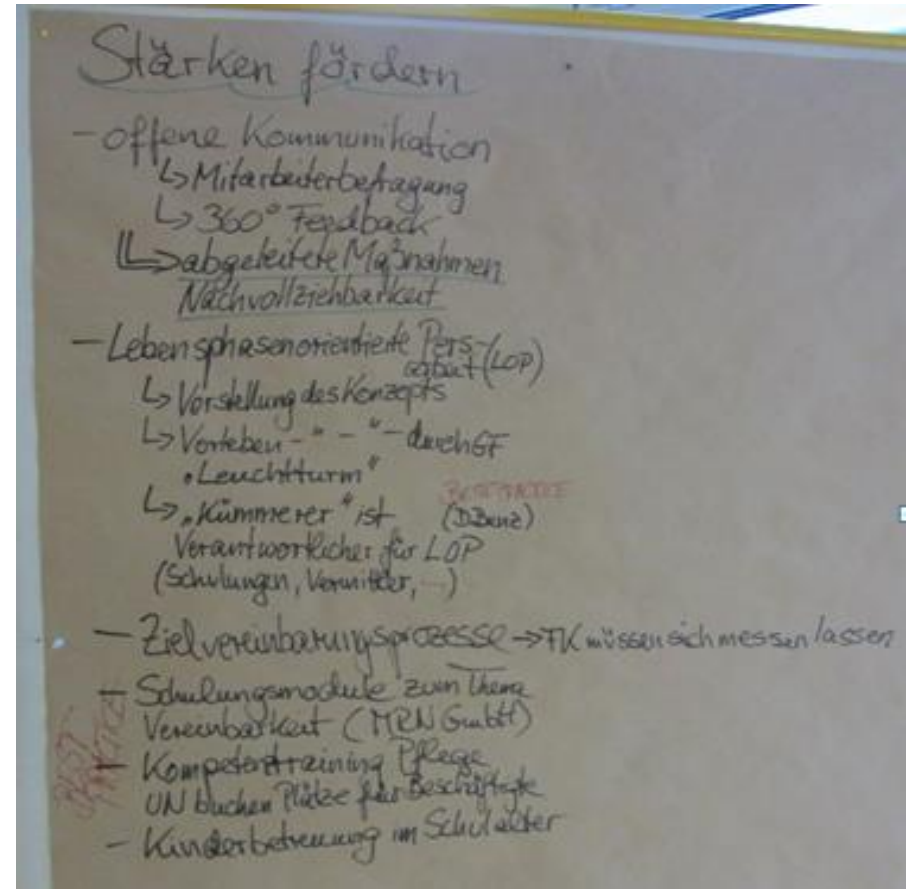 Stärken fördern
- offene Kommunikation
↳ Mitarbeiterbefragung
↳ 360° Feedback
↳ abgeleitete Maßnahmen
Nachvollziehbarkeit
- Lebensphasenorientierte Pers-
arbeit (LOP)
↳ Vorstellung des Konzepts
↳ Vorleben - " - " - durch GF
"Leuchtturm"
↳ "Kümmerer" ist
Verantwortlicher für LOP
(Schulungen, Vermittler, ...)
- Zielvereinbarungsprozesse → FK müssen sich messen lassen
- Schulungsmodule zum Thema
Vereinbarkeit (MRN GmbH)
- Kompetenztraining Pflege
UN buchen Plätze für Beschäftigte
- Kinderbetreuung im Schulalter
BEST
PRACTICE